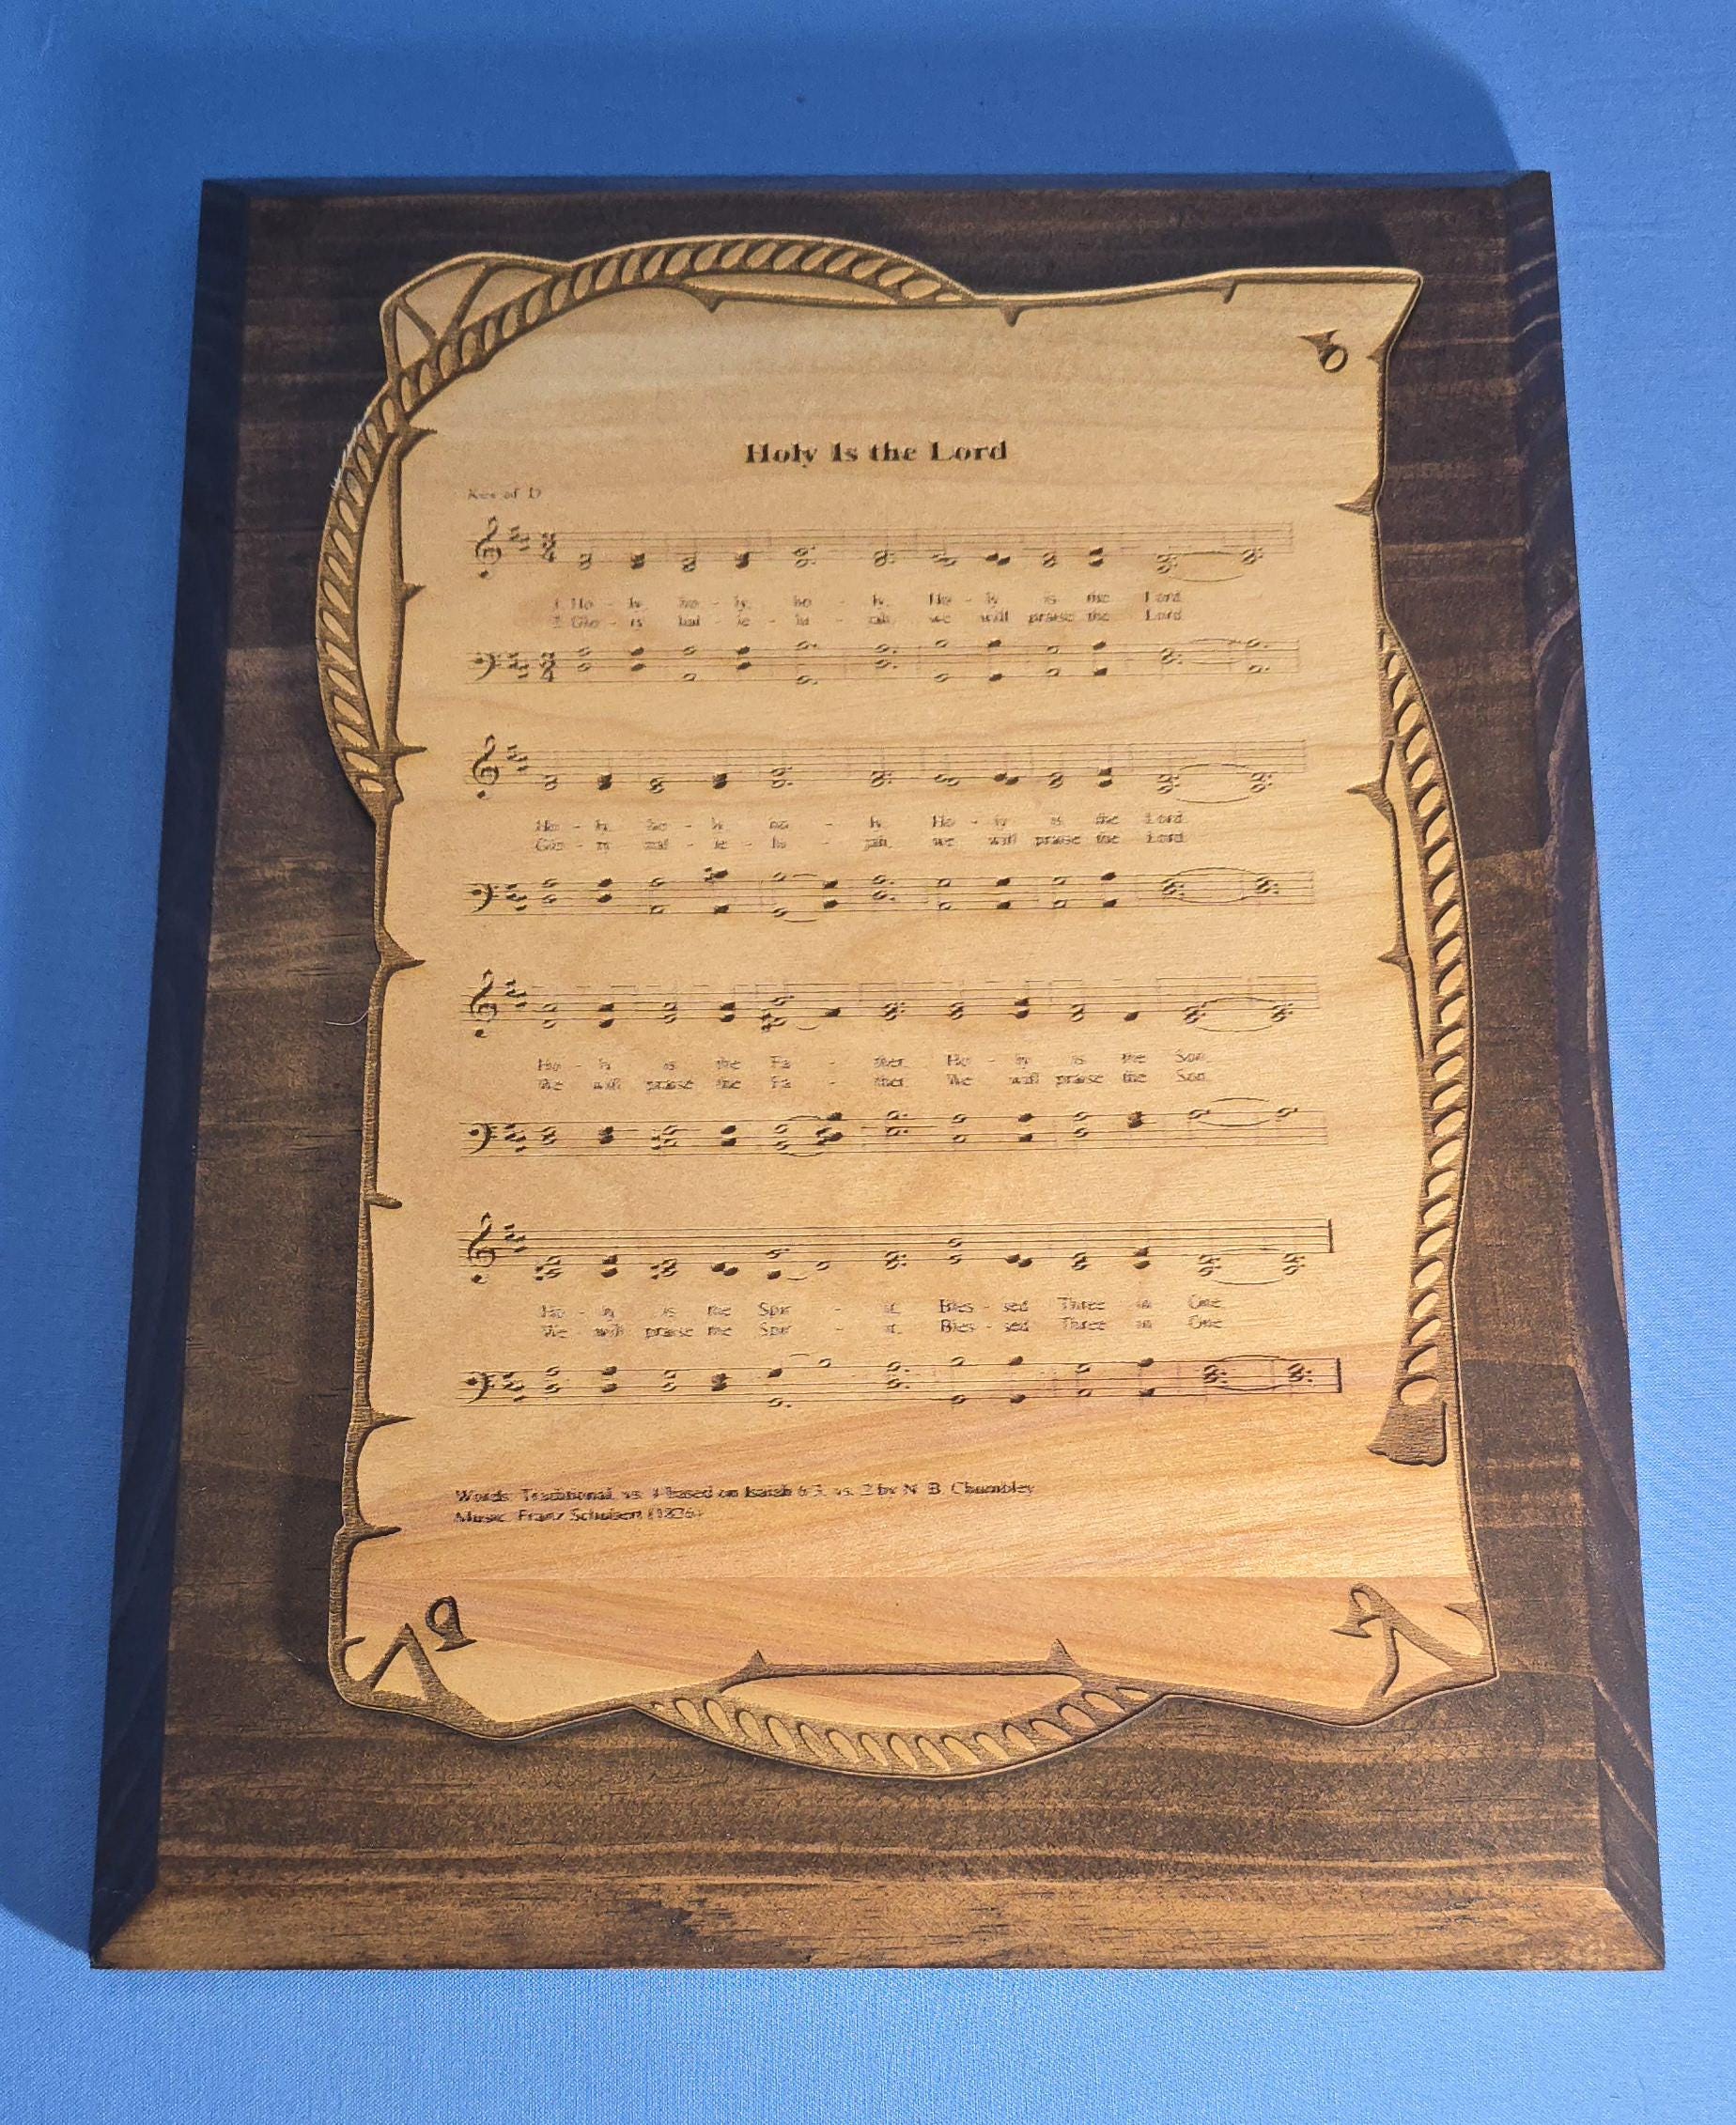 Holy Is the Lord
Key of D
1. Ho - ly, ho - ly, ho - ly, Ho - ly is the Lord.
2. Glo - ry, hal - le - lu - jah, we will praise the Lord.
Ho - ly, ho - ly, ho - ly, Ho - ly is the Lord.
Glo - ry, hal - le - lu - jah, we will praise the Lord.
Ho - ly is the Fa - ther. Ho - ly is the Son.
We will praise the Fa - ther. We will praise the Son.
Ho - ly is the Spir - it, Bles - sed Three in One.
We will praise the Spir - it, Bles - sed Three in One.
Words: Traditional, vs. 1 based on Isaiah 6:3, vs. 2 by N. B. Chumbley
Music: Franz Schubert (1826)